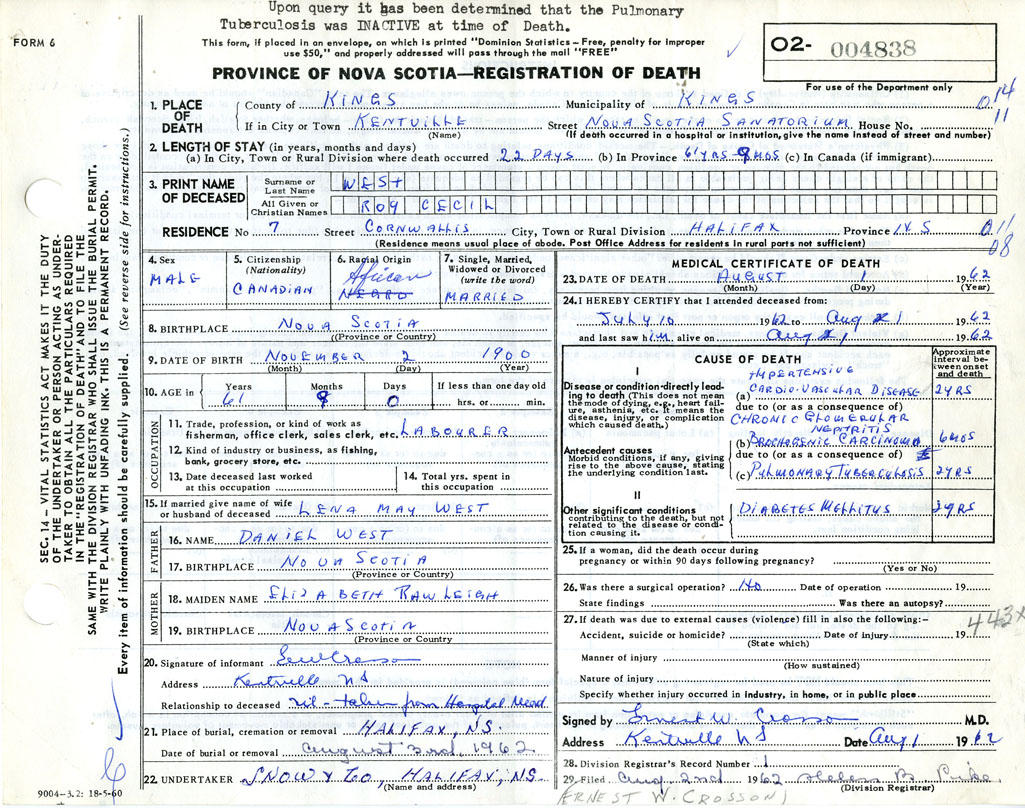 Upon query it has been determined that the Pulmonary
Tuberculosis was INACTIVE at time of Death.
FORM 6
This form, if placed in an envelope, on which is printed "Dominion Statistics – Free, penalty for improper
use $50," and properly addressed will pass through the mail "FREE"
O2- 004838
PROVINCE OF NOVA SCOTIA—REGISTRATION OF DEATH
For use of the Department only
1. PLACE OF DEATH
County of KINGS Municipality of KINGS
014
11
If in City or Town KENTVILLE Street NOVA SCOTIA SANATORIUM House No.
(Name) (If death occurred in a hospital or institution, give the name instead of street and number)
2. LENGTH OF STAY (in years, months and days)
(a) In City, Town or Rural Division where death occurred 22 DAYS (b) In Province 61 YRS 9 MOS (c) In Canada (if immigrant)
3. PRINT NAME OF DECEASED
Surname or Last Name WEST
All Given or Christian Names ROY CECIL
RESIDENCE No 7 Street CORNWALLIS City, Town or Rural Division HALIFAX Province N.S
011
08
(Residence means usual place of abode. Post Office Address for residents in rural parts not sufficient)
4. Sex
MALE
5. Citizenship
(Nationality)
CANADIAN
6. Racial Origin
African
NEGRO
7. Single, Married,
Widowed or Divorced
(write the word)
MARRIED
8. BIRTHPLACE NOVA SCOTIA
(Province or Country)
9. DATE OF BIRTH NOVEMBER 2 1900
(Month) (Day) (Year)
10. AGE in Years Months Days If less than one day old
61 9 0 hrs. or min.
OCCUPATION
11. Trade, profession, or kind of work as
fisherman, office clerk, sales clerk, etc. LABOURER
12. Kind of industry or business, as fishing,
bank, grocery store, etc.
13. Date deceased last worked
at this occupation
14. Total yrs. spent in
this occupation
15. If married give name of wife
or husband of deceased LENA MAY WEST
FATHER
16. NAME DANIEL WEST
17. BIRTHPLACE NOVA SCOTIA
(Province or Country)
MOTHER
18. MAIDEN NAME ELIZABETH RAWLEIGH
19. BIRTHPLACE NOVA SCOTIA
(Province or Country)
20. Signature of informant
Address Kentville NS
Relationship to deceased nil - taken from Hospital
21. Place of burial, cremation or removal HALIFAX, NS.
Date of burial or removal August 3rd 1962
22. UNDERTAKER SNOW & CO, HALIFAX, NS
(Name and address)
9004-3.2: 18-5-60
MEDICAL CERTIFICATE OF DEATH
23. DATE OF DEATH AUGUST 1 1962
(Month) (Day) (Year)
24. I HEREBY CERTIFY that I attended deceased from:
JULY 10 1962 to Aug 1 1962
and last saw him alive on Aug 1 1962
CAUSE OF DEATH
Approximate interval between onset and death
I
Disease or condition directly leading to death (This does not mean the mode of dying, e.g., heart failure, asthenia, etc. It means the disease, injury, or complication which caused death.)
HYPERTENSIVE
(a) CARDIO-VASCULAR DISEASE 2 YRS
due to (or as a consequence of)
CHRONIC GLOMERULAR
NEPHRITIS
Antecedent causes
Morbid conditions, if any, giving rise to the above cause, stating the underlying condition last.
(b) BRONCHOGENIC CARCINOMA 6 MOS
due to (or as a consequence of)
(c) PULMONARY TUBERCULOSIS 2 YRS
II
Other significant conditions
contributing to the death, but not related to the disease or condition causing it.
DIABETES MELLITUS 2 YRS
25. If a woman, did the death occur during
pregnancy or within 90 days following pregnancy?
(Yes or No)
26. Was there a surgical operation? NO Date of operation 19
State findings Was there an autopsy?
27. If death was due to external causes (violence) fill in also the following:-
443X
Accident, suicide or homicide? Date of injury 19
(State which)
Manner of injury
(How sustained)
Nature of injury
Specify whether injury occurred in industry, in home, or in public place
Signed by Ernest W. Crosson M.D.
Address Kentville NS Date Aug 1 1962
28. Division Registrar's Record Number 1
29. Filed Aug 2nd 1962 Helen B.
(Division Registrar)
(ERNEST W. CROSSON)
SEC. 14 – VITAL STATISTICS ACT MAKES IT THE DUTY
OF THE UNDERTAKER OR PERSON ACTING AS UNDER-
TAKER TO OBTAIN ALL THE PARTICULARS REQUIRED
IN THE "REGISTRATION OF DEATH" AND TO FILE THE
SAME WITH THE DIVISION REGISTRAR WHO SHALL ISSUE THE BURIAL PERMIT.
WRITE PLAINLY WITH UNFADING INK. THIS IS A PERMANENT RECORD.
Every item of information should be carefully supplied. (See reverse side for instructions.)